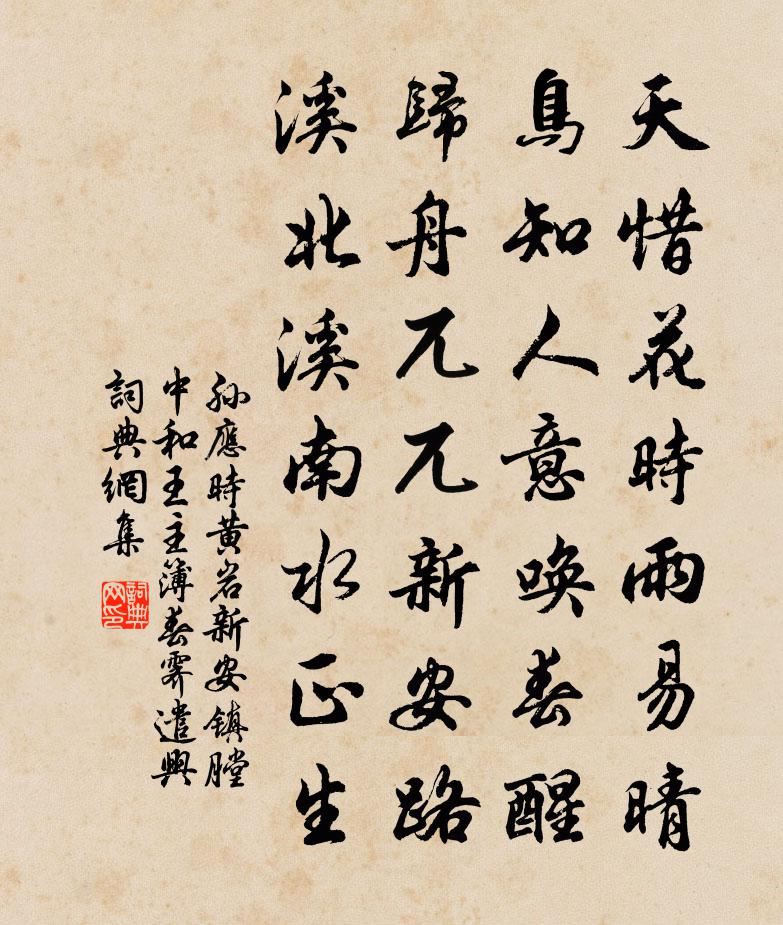 天惜花時雨易晴
鳥知人意喚春醒
歸舟兀兀新安路
溪北溪南水正生
孫應時黃岩新安鎮膛
中和王主簿春霽遣興
詞典網集
詞典网印